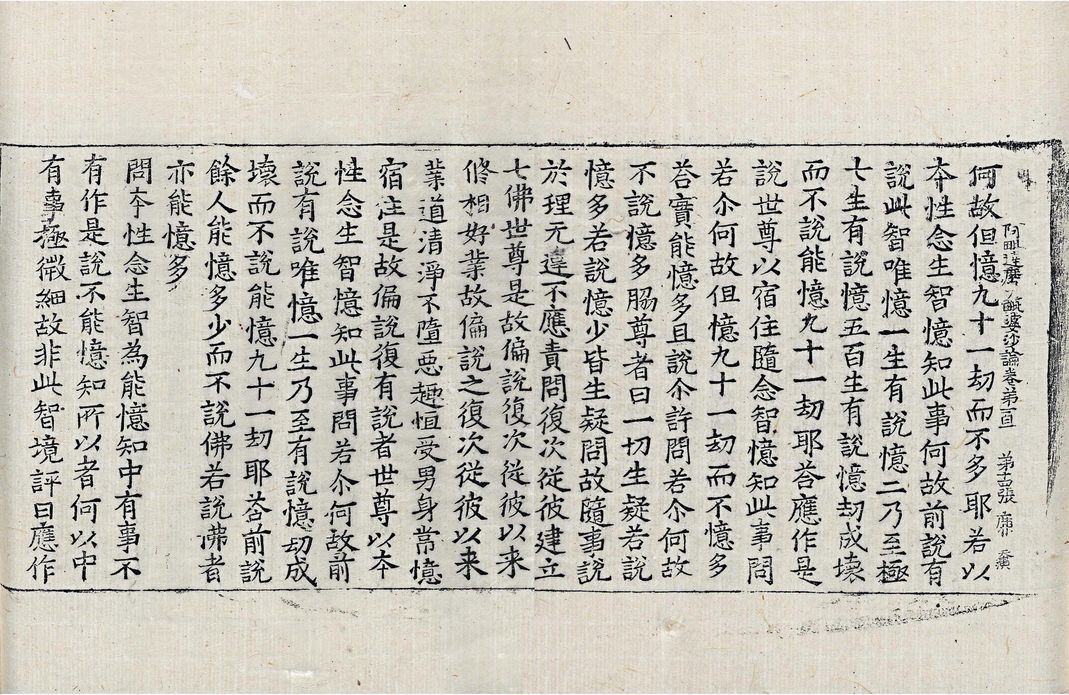 阿毗達磨毗婆沙論卷第百一 張
何故但憶九十一劫而不多耶若以
夲性念生智憶知此事何故前說有
說此智唯憶一生有說憶二乃至極
七生有說憶五百生有說憶劫成壞
而不說能憶九十一劫耶荅應作是
說世尊以宿住隨念智憶知此事問
若尒何故但憶九十一劫而不憶多
荅實能憶多且說尒許問若尒何故
不說憶多脇尊者曰一切生疑若說
憶多若說憶少皆生疑問故隨事說
於理无違不應責問復次從彼建立
七佛世尊是故偏說復次從彼以来
修相好業故偏說之復次從彼以来
業道清淨不墮惡趣恒受男身常憶
宿住是故偏說復有說者世尊以夲
性念生智憶知此事問若尒何故前
說有說唯憶一生乃至有說憶劫成
壞而不說能憶九十一劫耶荅前說
餘人能憶多少而不說佛若說佛者
亦能憶多
問夲性念生智為能憶知中有事不
有作是說不能憶知所以者何以中
有事極微細故非此智境評曰應作